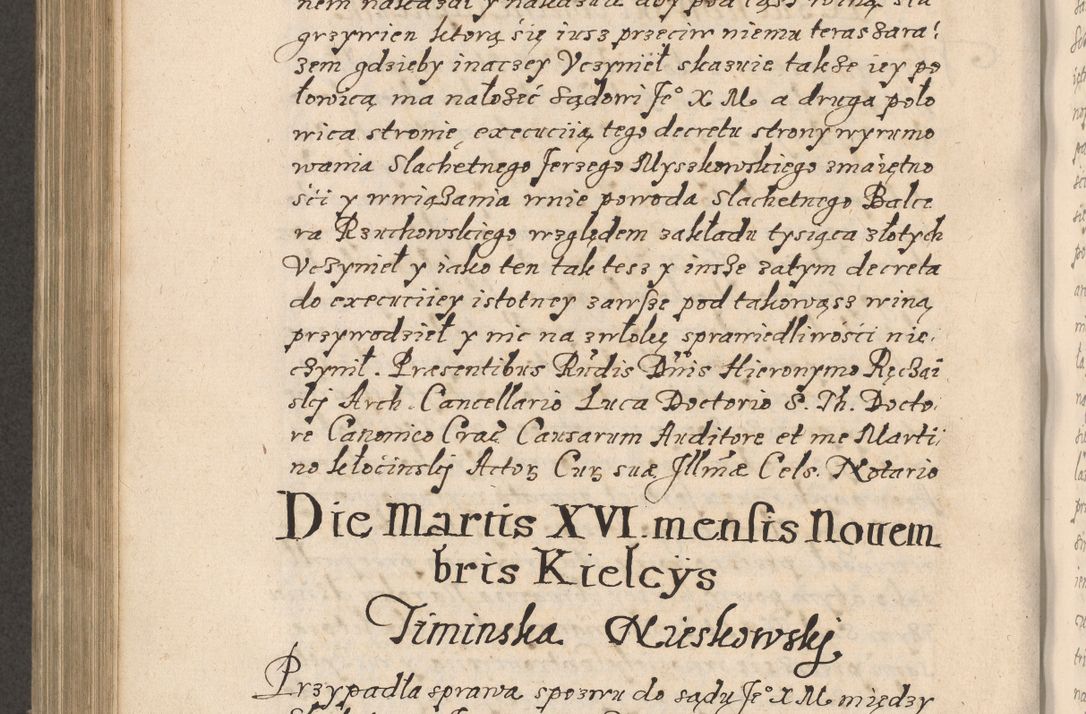 nem nakazał y nakazuie aby pod tąsz winą sta
grzywien ktorą się iusz przeciw niemu teras zara:
zem gdzieby inaczey Vczynieł skazuie takze iey po
łowicą ma nałozeć sądowi Je° X M. a druga poło
wica stronię executiią tego decretu strony wyrumo
wania Slachetnego Jerzego Myszkowskiego zmaiętno
ści y wwiązania wnie powoda Slachetnego Balce
ra Rzuchowskiego względem zakładu tysiąca złotych
Vczynieł y iako ten tak tesz y insze zatym decreta
do executiiey istotney zawsze pod takowąsz winą
przywodzieł y nic na zwłokę sprawiedliwości nie:
czynił. Præsentibus Rndis Dnis Hieronymo Ręczai
skj Arch. Cancellario Luca Doctorio S. Th. Docto:
re Canonico Crac Causarum Auditore et me Marti:
no kłocinskj Actor Cur suæ Jllmæ Cels. Notario
Die Martis XVI. mensis Nouem
bris Kielcÿs
Timinska Nieskowskj
Przypadła sprawa spozwu do sądu Je° X M między